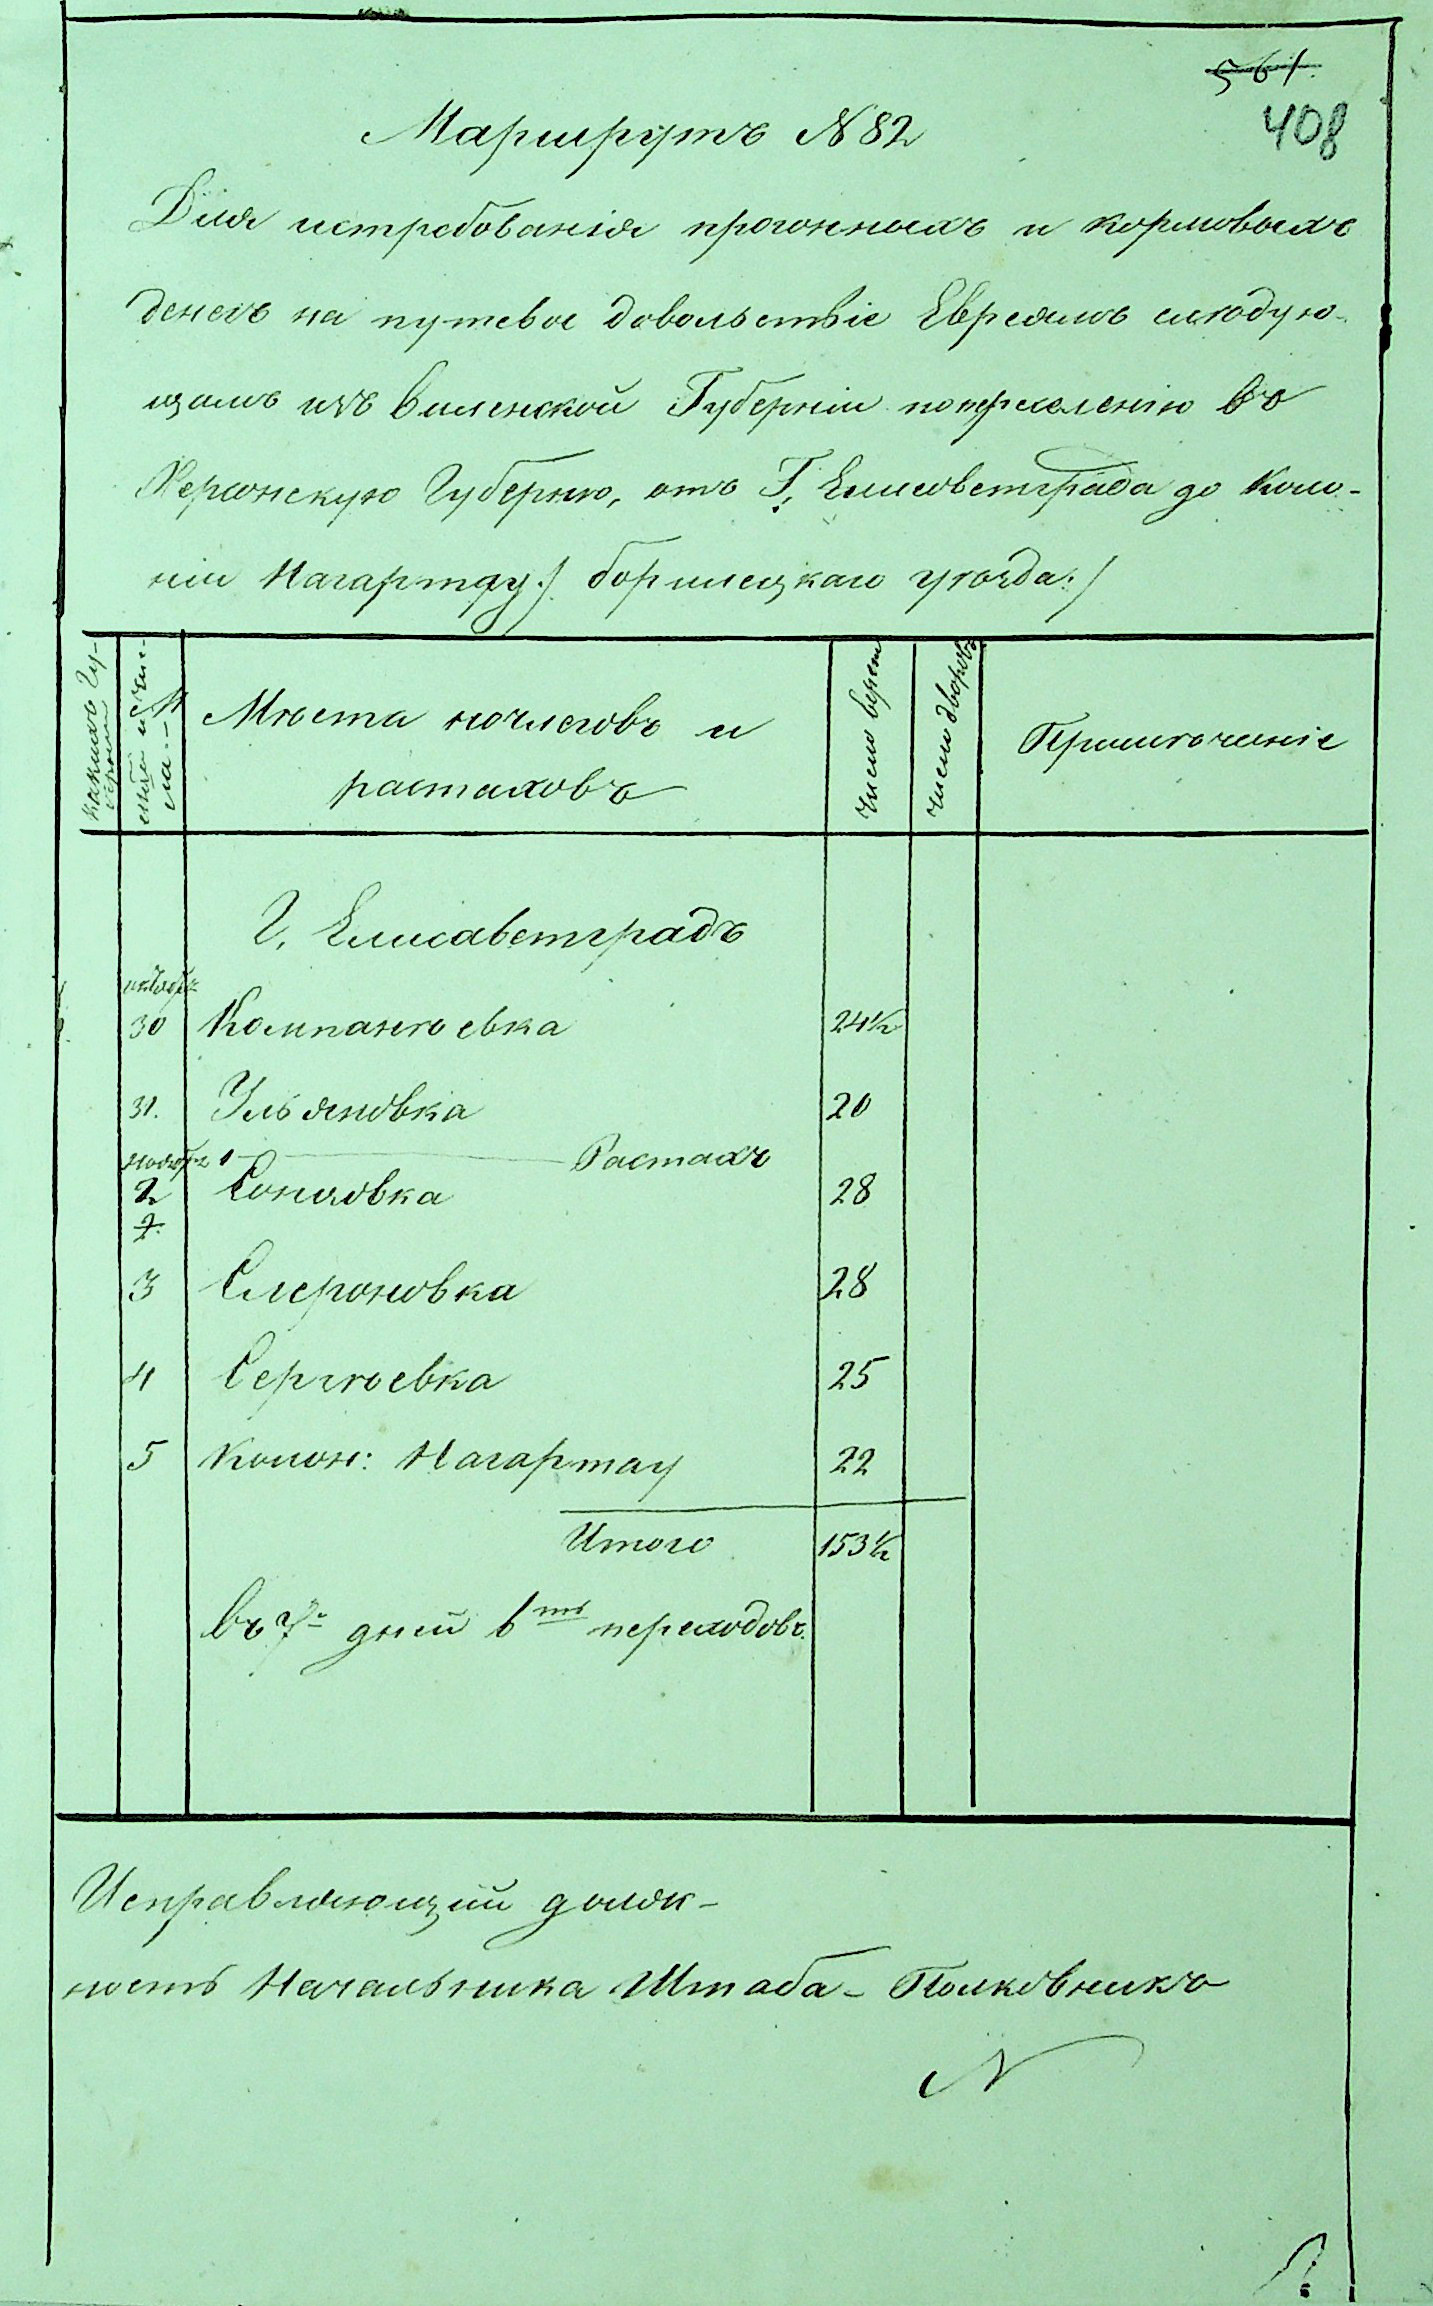 561.
408
Маршрутъ N 82
Для истребованія прогонныхъ и кормовыхъ
денегъ на путевое довольствіе Евреямъ слѣдую-
щимъ изъ Виленской Губерніи по переселенію въ
Херсонскую Губернію, отъ Г. Елисаветграда до Коло-
ніи Нагартау /: Бориславскаго уѣзда :/
какихъ Гу-
берній
М
Мѣста ночлеговъ и
растаховъ
число верстъ
число дворовъ
Примѣчаніе
Г. Елисаветградъ
октября
30 Компанѣевка 24½
31. Ульяновка 20
ноября 1 Растахъ
2 Сонцовка 28
2.
3 28
4 Сергѣевка 25
5 Колон: Нагартау 22
Итого 153½
въ 7 дней 6ть переходовъ.
Исправляющій долж-
ность Начальника Штаба - Полковникъ
N